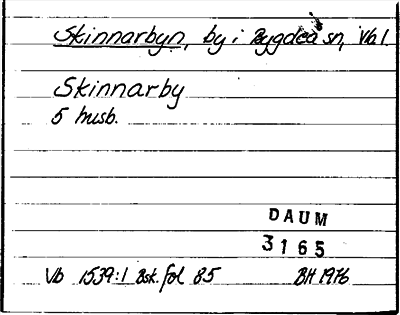 Skinnarbyn, by i Bygdeå sn, Vbl.
Skinnarby
5 husb.
DAUM
3165
Vb 1539:1 Bsk. fol 85 BH 1976